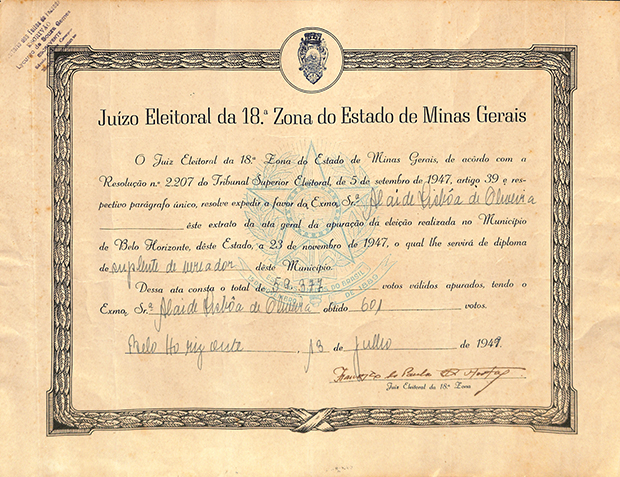 ESCRIVÃO
Juízo Eleitoral da 18.ª Zona do Estado de Minas Gerais
O Juiz Eleitoral da 18.ª Zona do Estado de Minas Gerais, de acôrdo com a
Resolução n.º 2.207 do Tribunal Superior Eleitoral, de 5 de setembro de 1947, artigo 39 e res-
pectivo parágrafo único, resolve expedir a favor do Exmo. Sr.ª Alaíde Lisbôa de Oliveira
êste extrato da ata geral da apuração da eleição realizada no Município
de Belo Horizonte, dêste Estado, a 23 de novembro de 1947, o qual lhe servirá de diploma
de suplente de vereador dêste Município.
Dessa ata consta o total de 59.377 votos válidos apurados, tendo o
Exmo. Sr.ª Alaíde Lisbôa de Oliveira obtido 601 votos.
Belo Horizonte, 13 de Julho de 1949.
Juiz Eleitoral da 18.ª Zona